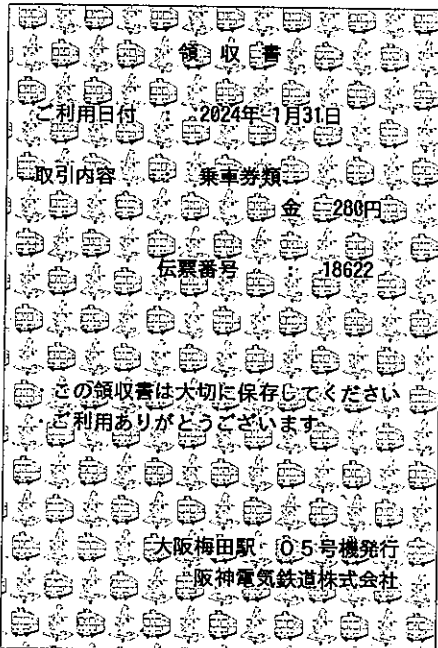 領収書
ご利用日付 : 2024年 1月31日
取引内容 : 乗車券類
金 280円
伝票番号 : 18622
・この領収書は大切に保存してください
・ご利用ありがとうございます
大阪梅田駅 05号機発行
阪神電気鉄道株式会社